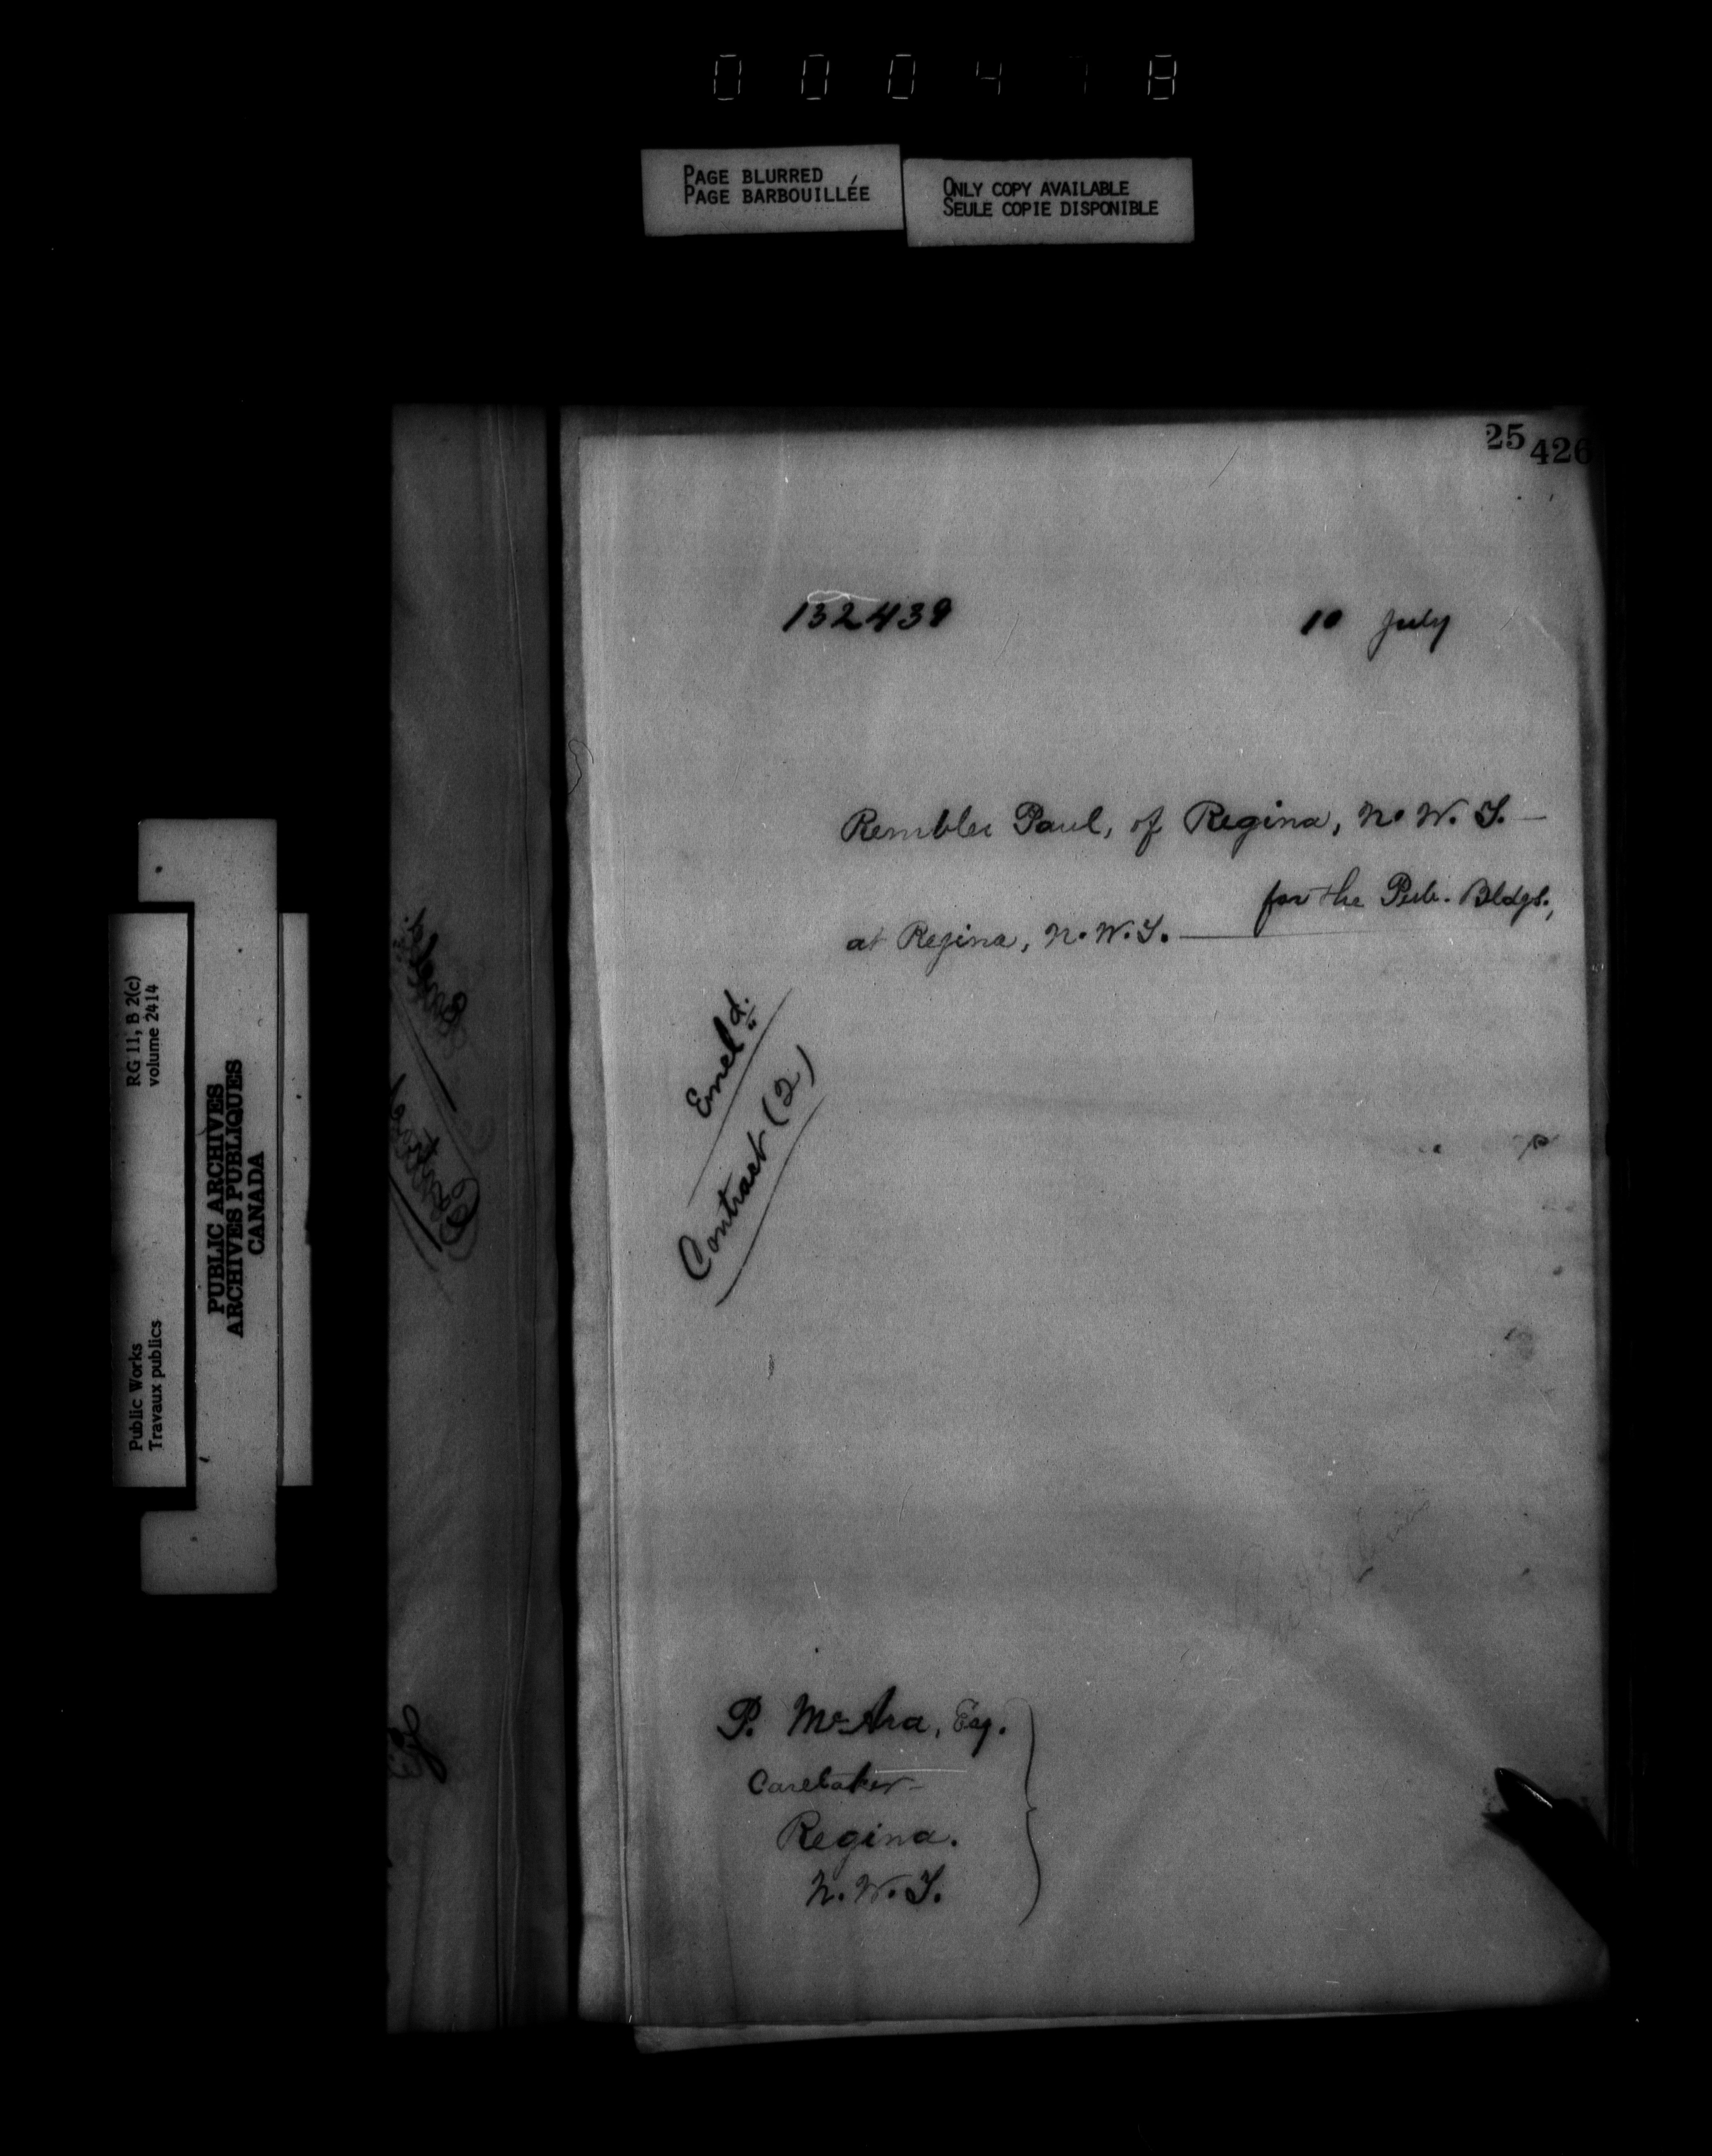 000478
PAGE BLURRED
PAGE BARBOUILLÉE
ONLY COPY AVAILABLE
SEULE COPIE DISPONIBLE
25 426
132439
10 July
Rembler Paul, of Regina, N. W. T. —
for the Pub. Bldgs.,
at Regina, N. W. T. —
Encl d.
Contract (2)
P. McAra, Esq.
Caretaker
Regina.
N. W. T.
RG 11, B 2(c)
volume 2414
Public Works
Travaux publics
PUBLIC ARCHIVES
ARCHIVES PUBLIQUES
CANADA